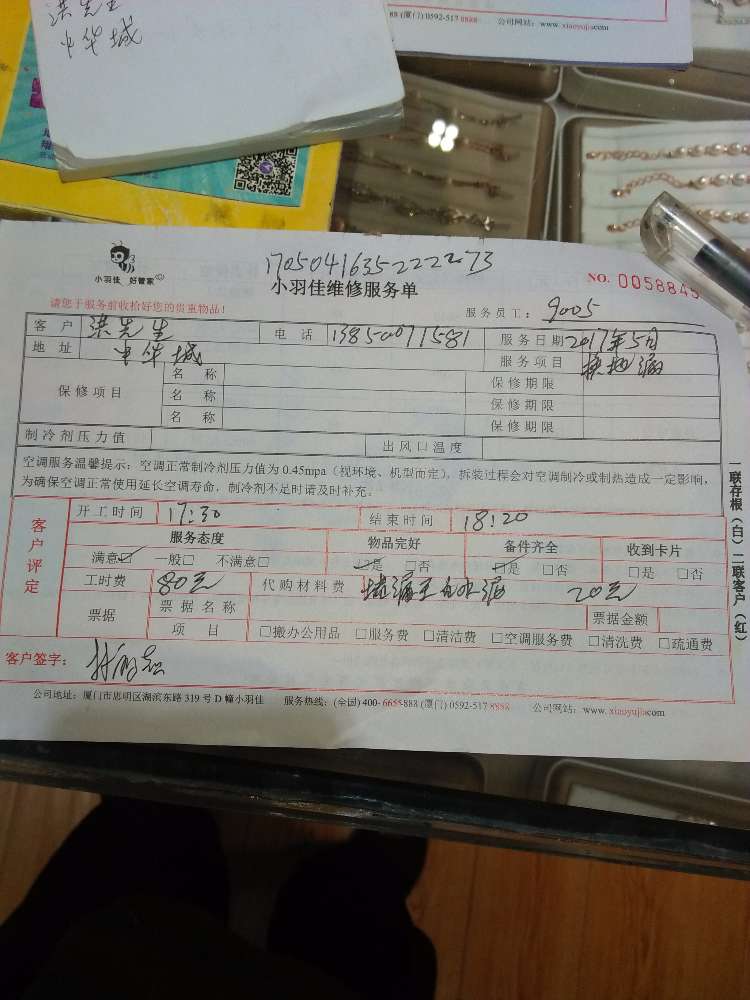 洪先生
中华城
88 (厦门) 0592-517 8888 公司网站: www. xiaoyujia.com
小羽佳 好管家
17050416352222273
小羽佳维修服务单
NO. 0058845
请您于服务前收拾好您的贵重物品!
服务员工: 9005
客户 洪先生 电话 13850071581 服务日期 2017年5月
地址 中华城 服务项目
保修项目 名称 保修期限
名称 保修期限
名称 保修期限
制冷剂压力值 出风口温度
空调服务温馨提示: 空调正常制冷剂压力值为 0.45mpa (视环境、机型而定), 拆装过程会对空调制冷或制热造成一定影响,
为确保空调正常使用延长空调寿命, 制冷剂不足时请及时补充。
客户评定
开工时间 17:30 结束时间 18:20
服务态度 物品完好 备件齐全 收到卡片
满意☑ 一般□ 不满意□ ☑是 □否 ☑是 □否 □是 □否
工时费 80元 代购材料费 20元
票据 票据名称 票据金额
项目 □搬办公用品 □服务费 □清洁费 □空调服务费 □清洗费 □疏通费
客户签字:
公司地址: 厦门市思明区湖滨东路 319 号 D 幢小羽佳 服务热线: (全国) 400-6655-888 (厦门) 0592-517 8888 公司网站: www. xiaoyujia.com
一联存根(白)二联客户(红)